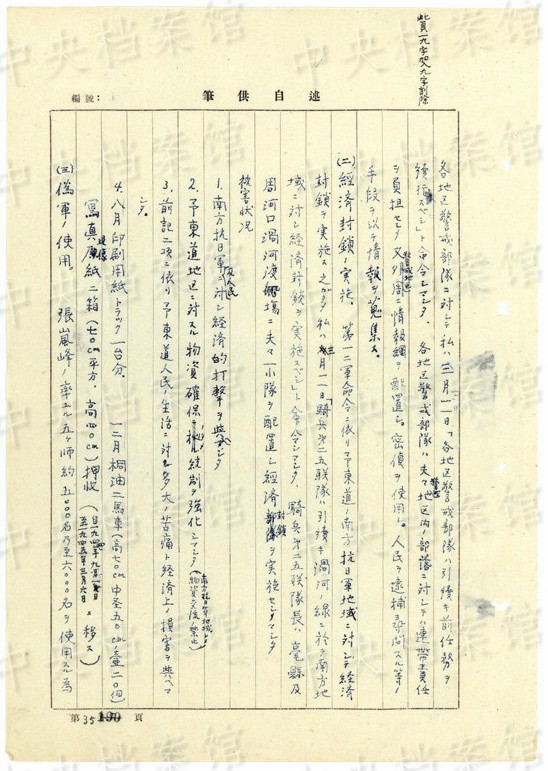 此頁一九字加入九字削除
筆供自述
編號：
各地区警戒部隊ニ対シテ私ハ三月一一日「各地区警戒部隊ハ引續キ前任務ヲ
續行スベシ」ト命令シマシタ. 各地区警戒部隊ハ夫々警戒地区内ノ部落ニ対シテハ連帯責任
ヲ負担セシメ又外周ニ情報網ヲ配置シ、密偵ヲ使用シ、人民ヲ逮捕拷問スル等ノ
手段ヲ以テ情報ヲ蒐集ス.
(二)経済封鎖ノ実施. 第一二軍命令ニ依リ予東道ノ南方抗日軍地域ニ対シテ経済
封鎖ヲ実施ス之ガタメ私ハ三月一一日「騎兵第二五联隊ハ引續キ渦河ノ線ニ於テ南方地
域ニ対シ経済封鎖ヲ実施スベシ」ト命令シマシタ. 騎兵第二五联隊長ハ亳縣及
周河口渦河渡場ニ夫々一小隊ヲ配置シ経済封鎖ヲ実施セシメマシタ
被害状况
1. 南方抗日軍及人民ニ対シ経済的打撃ヲ與ヘマシタ
2. 予東道地区ニ対スル物資確保シ統制ヲ強化シマシタ(南方抗日軍地域トノ物資交流ノ禁止)
3. 前記二項ニ依リ予東道人民ノ生活ニ対シ多大ノ苦痛ト経済上ノ損害ヲ與ヘマ
シタ.
4. 八月印刷用紙トラック一台分. 一二月桐油二馬車(高七〇cm中圣五〇cmノ壷二〇個)
寫真現像紙二箱(七〇cm平方. 高四〇cm)押收(自一九四四年九月至一九四五年三月六日ニ移ス)
(三)偽軍ノ使用. 張嵐峰ノ率エル五ヶ師約五〇〇〇名乃至六〇〇〇名ヲ使用スル為
第35頁